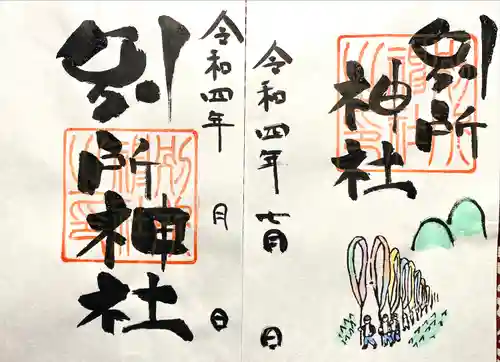 別所
神社
令和四年 七月 日
令和四年 月 日
別所神社